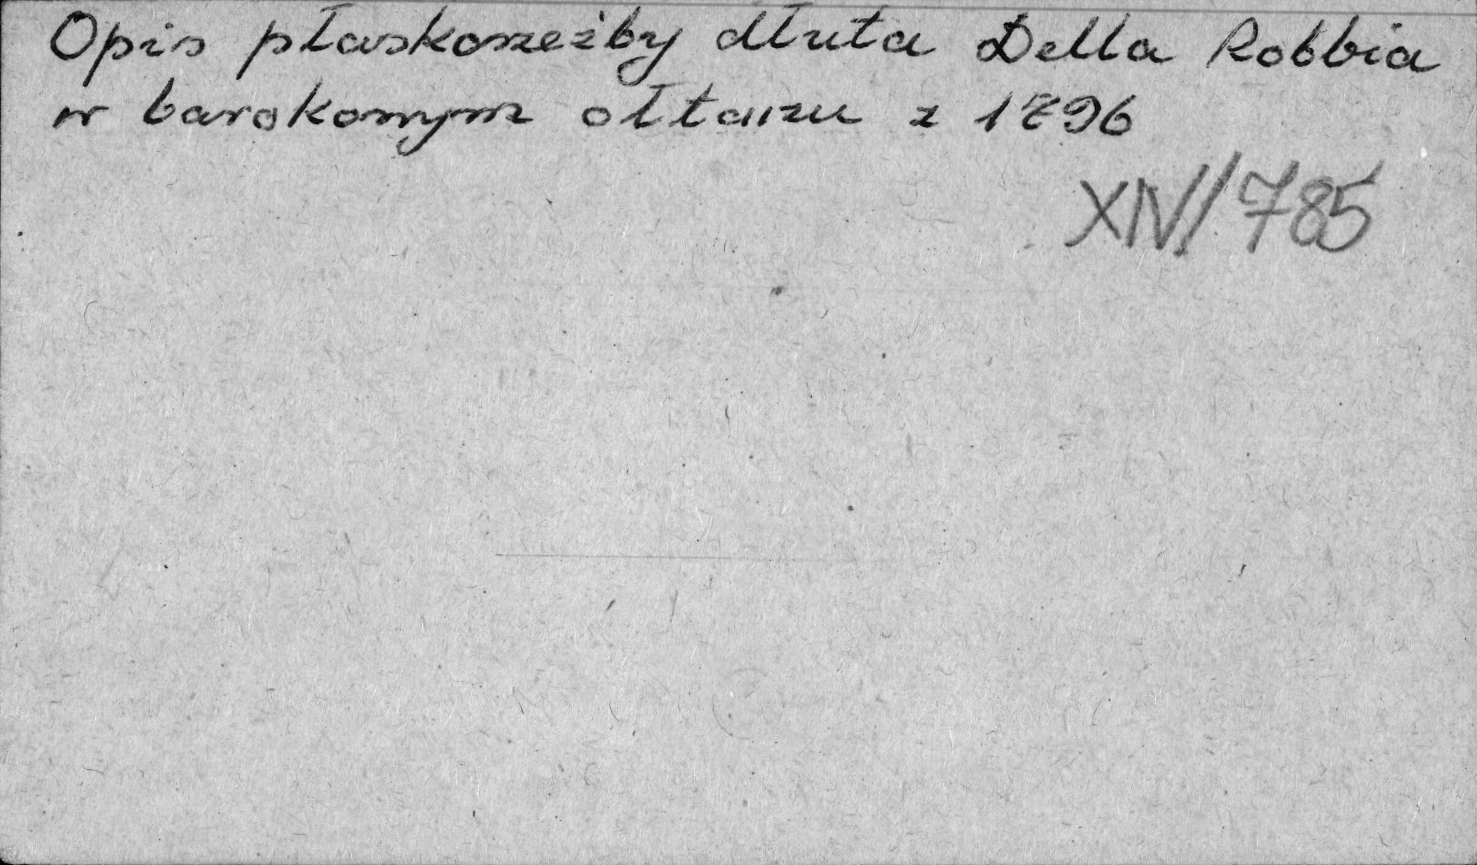 Opis płaskorzeźby dłuta Della Robbia
w barokowym ołtarzu z 1796
XIV/785